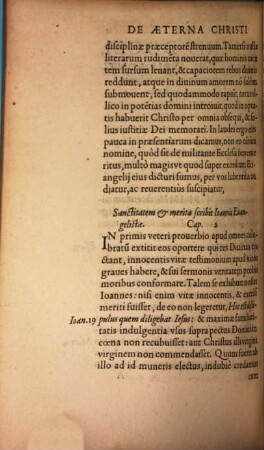 DE AETERNA CHRISTI
disciplinæ præceptorē strenuum. Tametsi
literarum rudimēta nouerat, quæ homini
tem sursum leuant, & capaciorem rebus diuinis
reddunt, atque in diuinum amorem nō
submouent, sed quodammodo rapit,
lico in potētias domini introiuit,
habuerit Christo per omnia obsequi, &
lius iustitiæ Dei memorari. In laudes ergo
pauca in præsentiarum dicamus, non ex
nomine, quòd sit de militante Ecclesia
ritus, multò magis vt quod super eiusdem
angelij eius dicturi sumus, per vos
diatur, ac reuerentius suscipiatur,
Sanctitatem & merita scribit Ioānis Euan-
gelistæ. Cap. 2
IN primis veteri prouerbio apud omnes
bratum extitit eos oportere qui res Diuinas
ctant, innocentis vitæ testimonium apud
graues habere, & sui sermonis veritatem
moribus conformare. Talem se exhibuit
Ioannes: nisi enim vitæ innocentis, &
meriti fuisset, de eo non legeretur, Hic
Ioan. 19 pulus quem diligebat Iesus: & maximæ
tatis indulgentia vsus supra pectus Domini
cœna non recubuisset: aut Christus illi virgini
virginem non commendasset. Quum
illo ad id muneris electus, indubiè credamus
cum